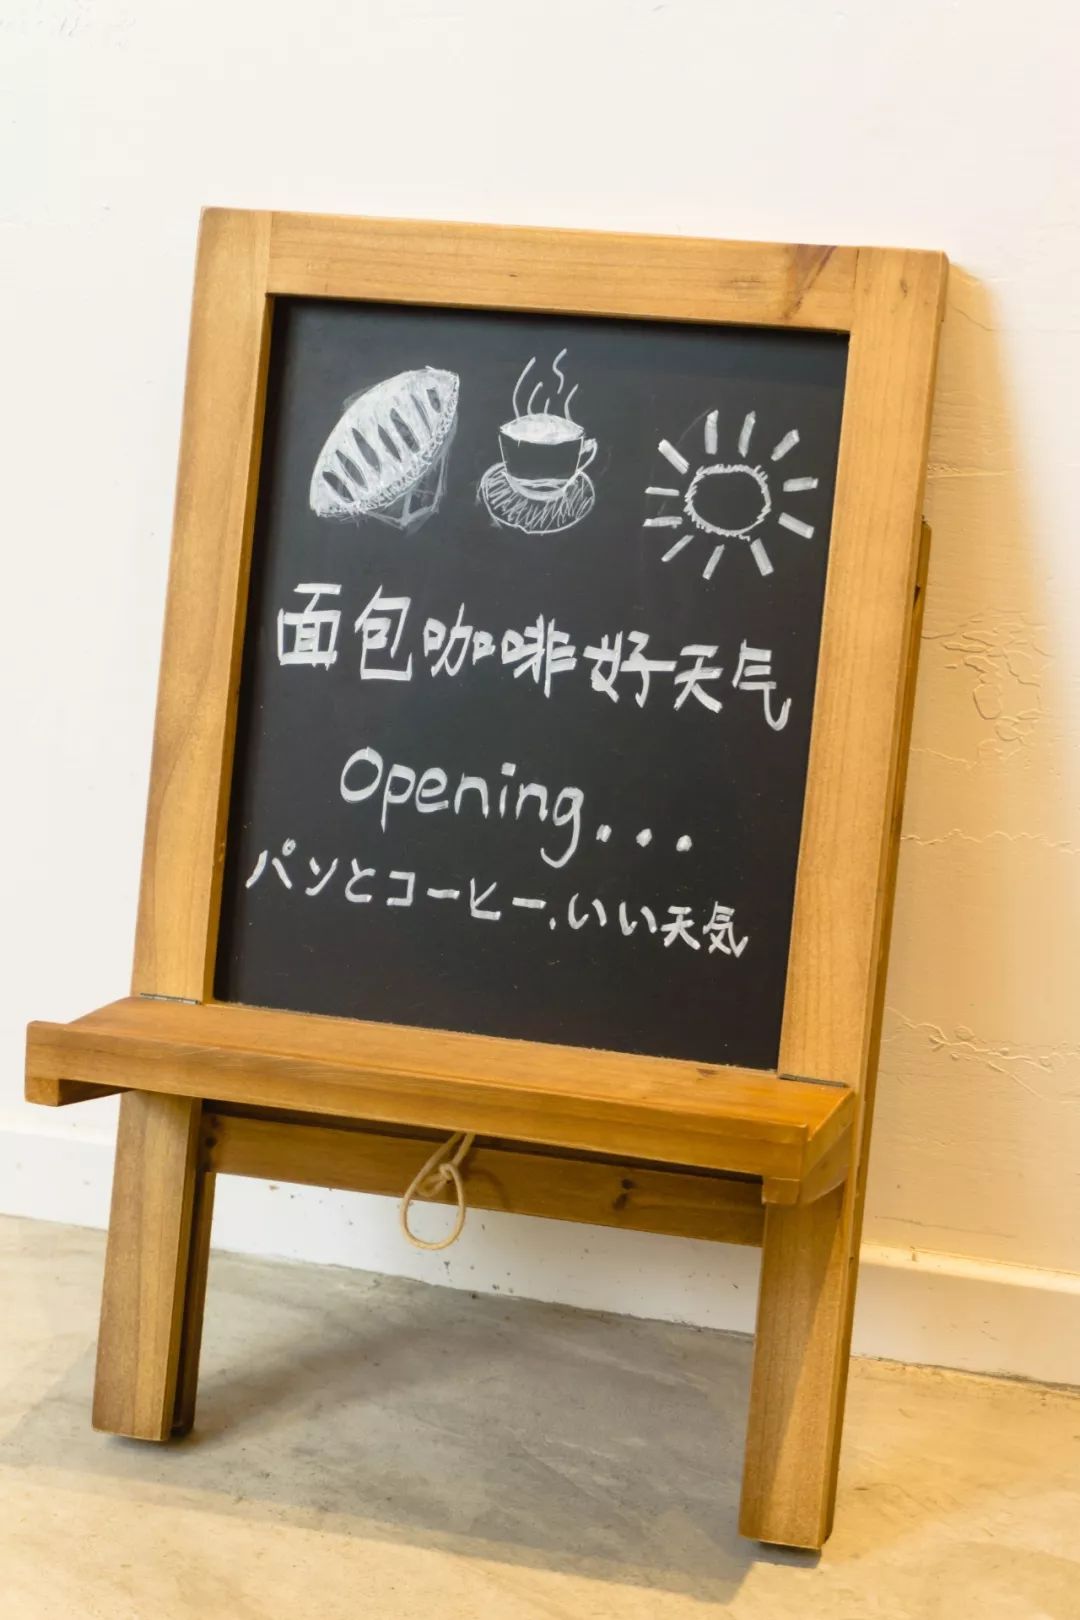 面包咖啡好天气
Opening...
パンとコーヒー.いい天気